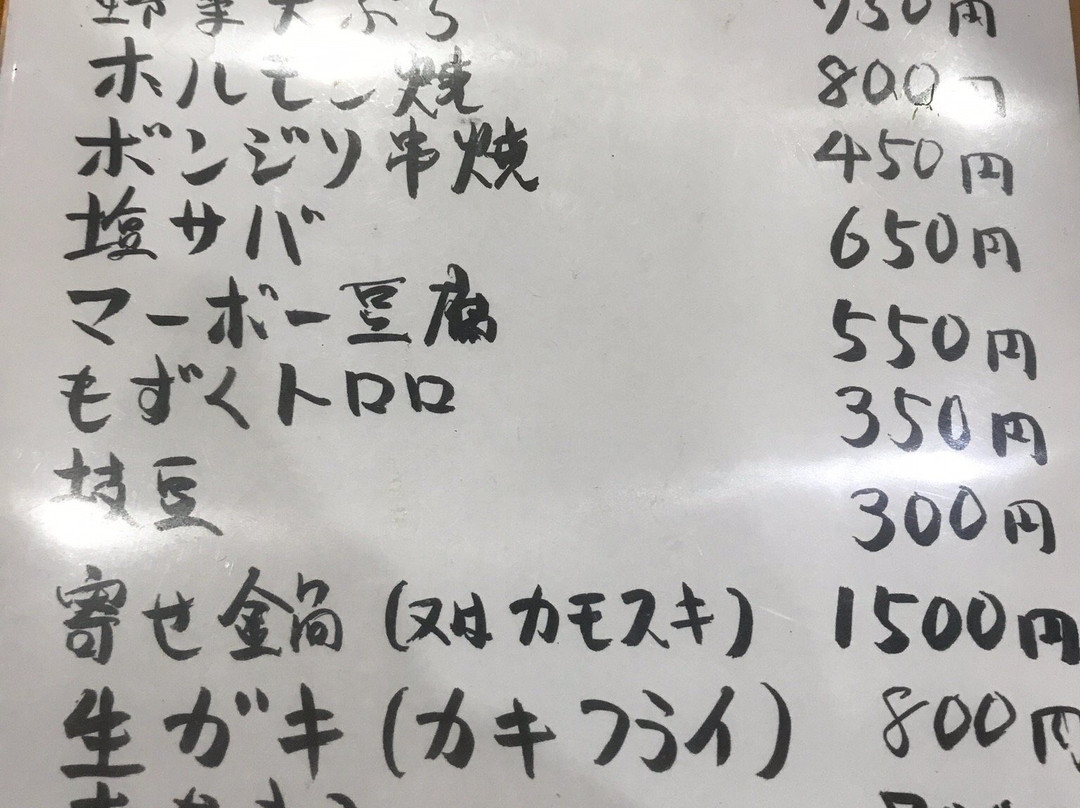 野菜天ぷら 750円
ホルモン焼 800円
ボンジリ串焼 450円
塩サバ 650円
マーボー豆腐 550円
もずくトロロ 350円
枝豆 300円
寄せ鍋(又はカモスキ) 1500円
生ガキ(カキフライ) 800円